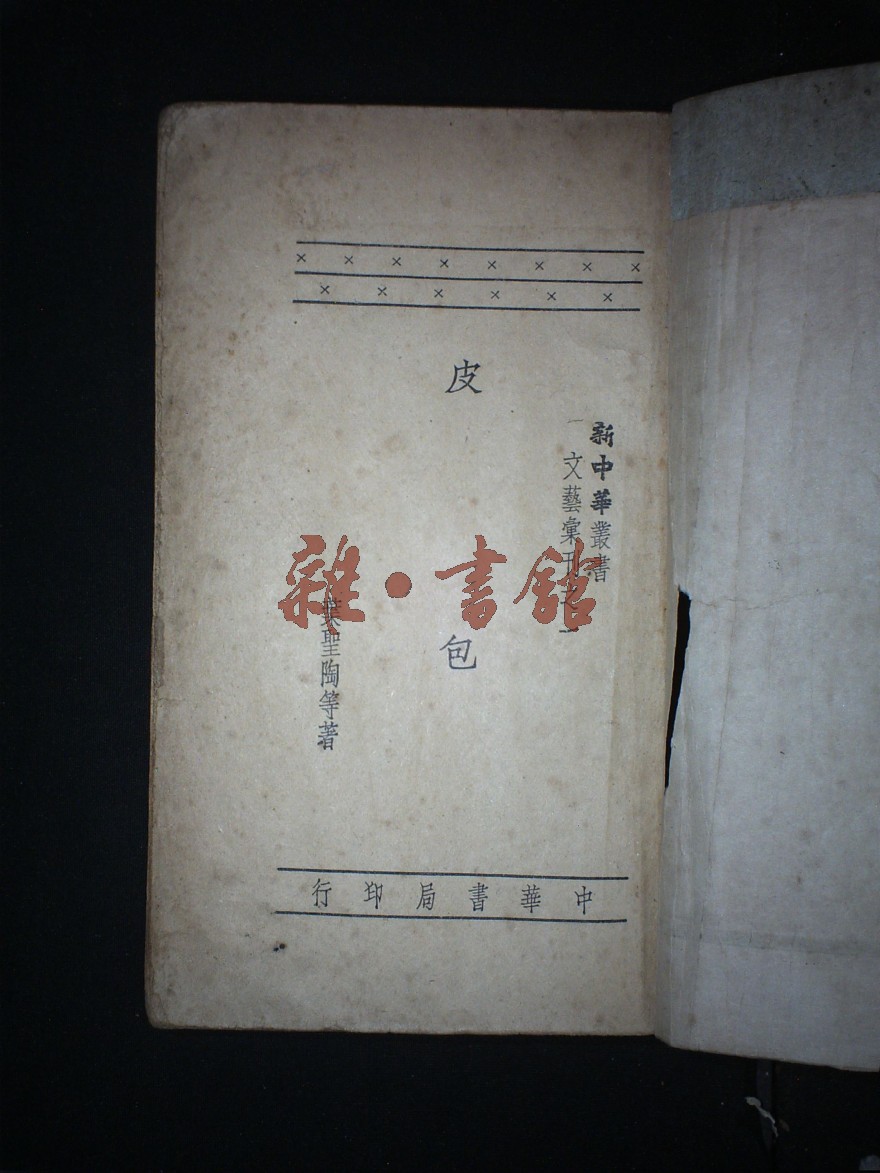 新中華叢書
文藝彙刊之一
皮包
葉聖陶等著
中華書局印行
雜·書館